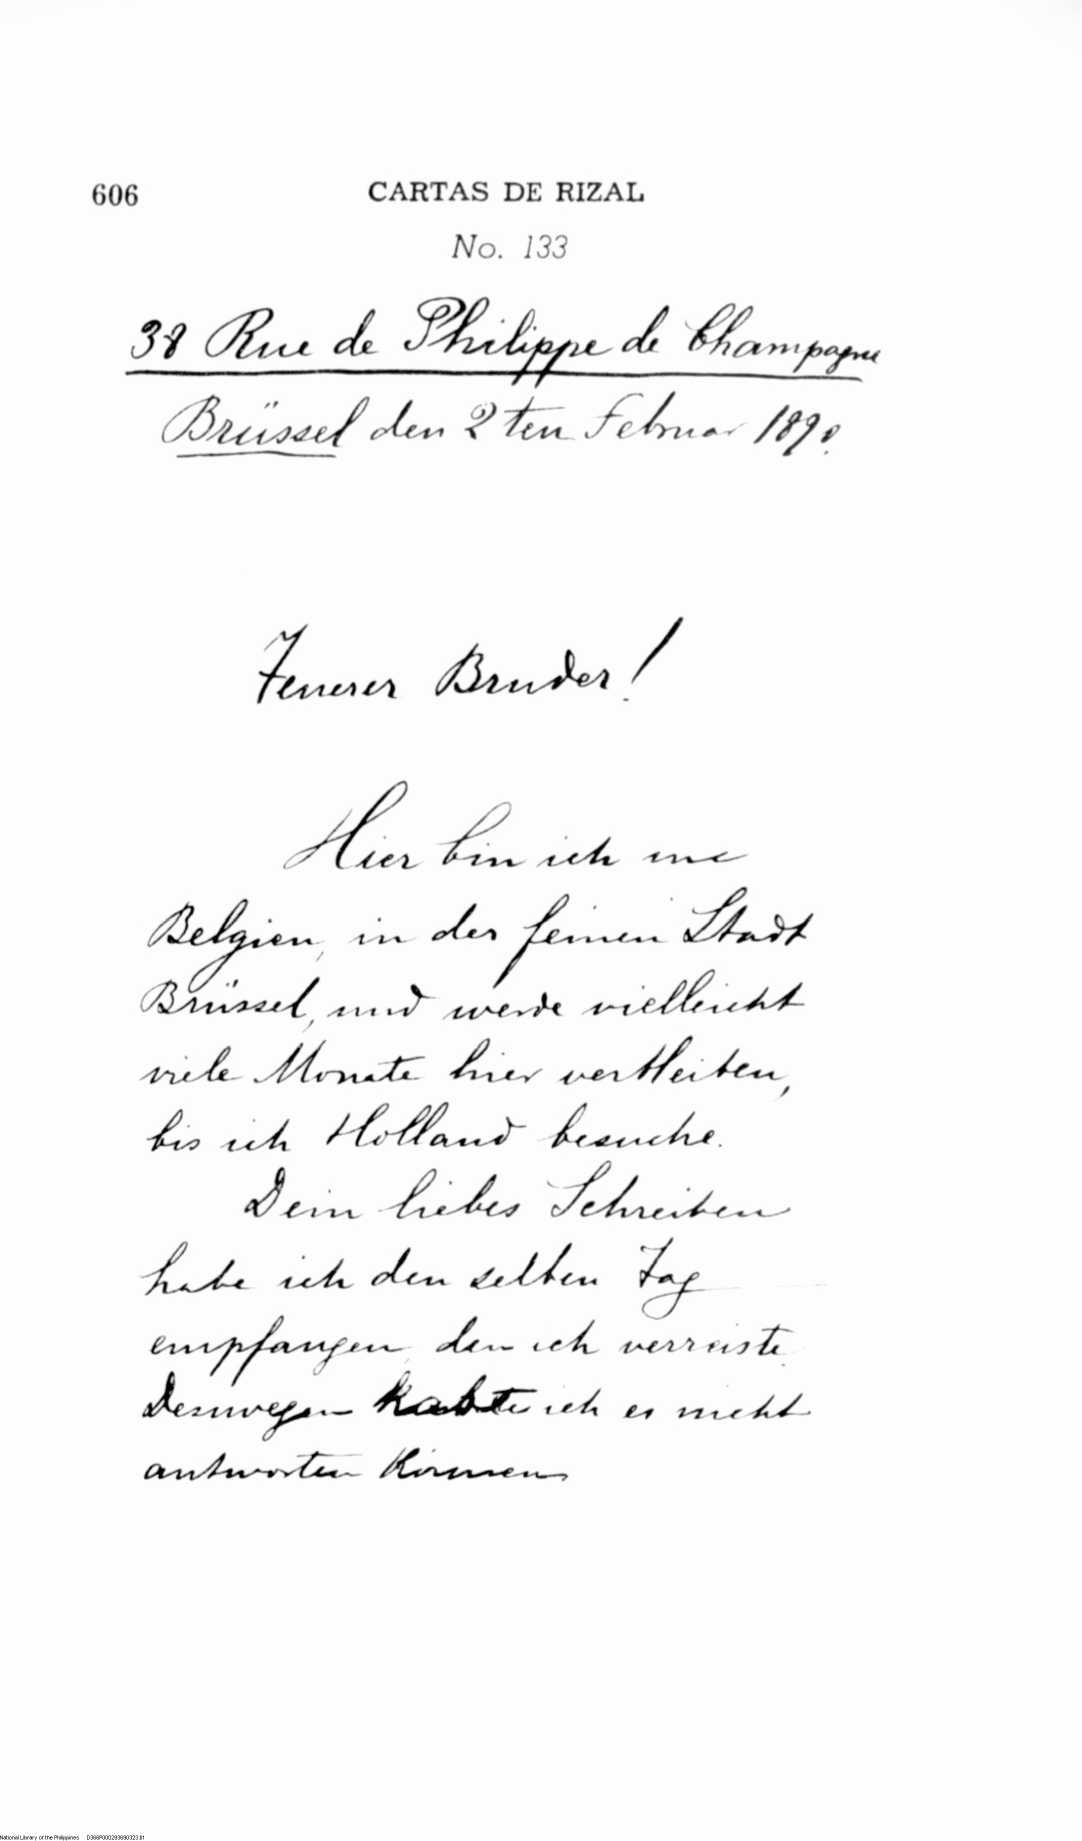 606
CARTAS DE RIZAL
No. 133
38 Rue de Philippe de Champagne
Brüssel den 2ten Februar 1890.
Teuerer Bruder!
Hier bin ich in
Belgien, in der feinen Stadt
Brüssel, und werde vielleicht
viele Monate hier verbleiben,
bis ich Holland besuche.
Dein liebes Schreiben
habe ich den selben Tag
empfangen, den ich verreiste.
Deswegen habe ich es nicht
antworten können
National Library of the Philippines D366P000293690323.01